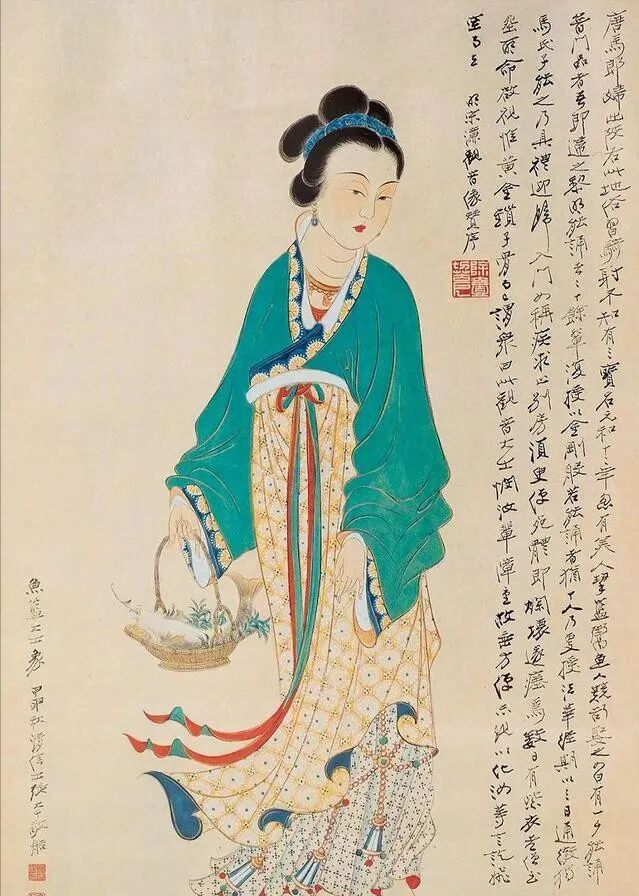 唐馬郎婦出陝右此地俗習騎射不知有三寶名元和十二年忽有美人挈籃鬻魚人競欲娶之曰有一夕能誦
普門品者吾即適之黎明能誦者二十餘輩復授以金剛般若能誦者猶十人乃更授法華經期以三日通徹獨
馬氏子能之乃具禮迎歸入門女稱疾求止別房須臾便死體即爛壞遂瘞焉數日有紫衣老僧至
塟所命啟視惟黃金鎖子骨謂眾曰此觀音大士憫汝輩障重故垂方便示現以化汝等言訖飛
空而去 明宋濂觀音像贊序
魚籃大士象 秋清信士張大千敬